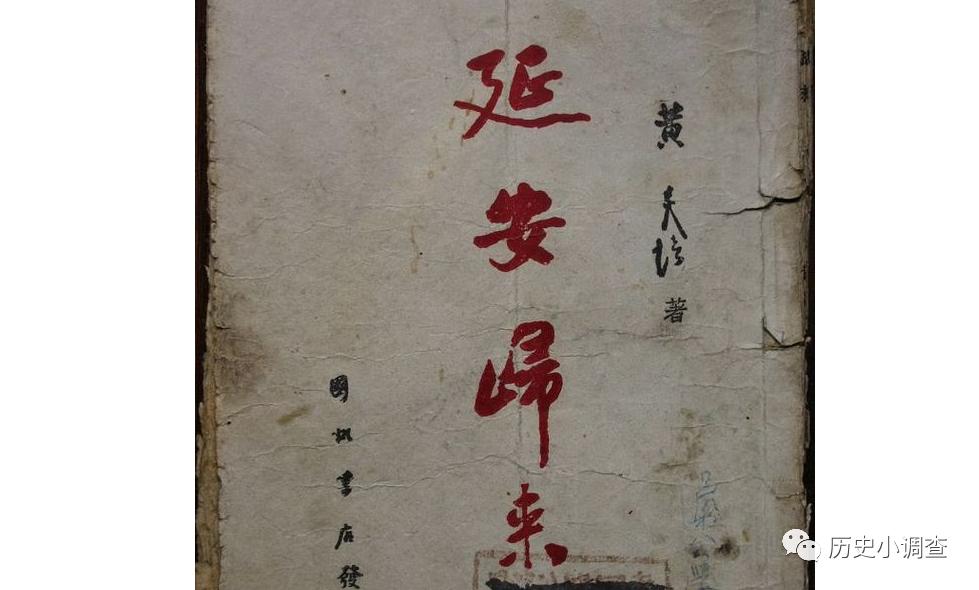 黄炎培著
延安歸来
國訊書店發
历史小调查